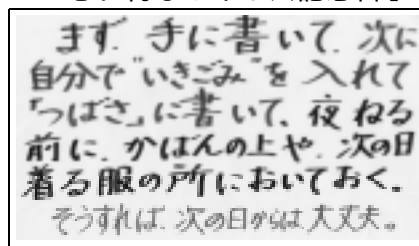 まず、手に書いて、次に
自分で"いきごみ"を入れて
「つばさ」に書いて、夜ねる
前に、かばんの上や、次の日
着る服の所においておく。
そうすれば、次の日からは大丈夫。